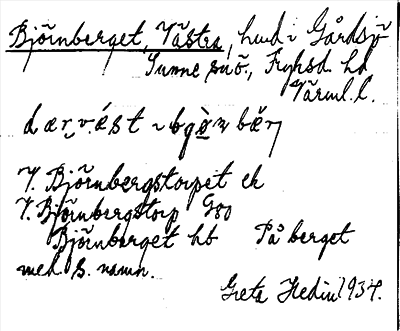 Björnberget, Västra, hmd i Gårdsjö
Sunne sn., Fryksd. hd
Värml. l.
V. Björnbergstorpet ek
V. Björnbergstorp G80
Björnberget hb På berget
med s. namn.
Greta Hedin 1934.